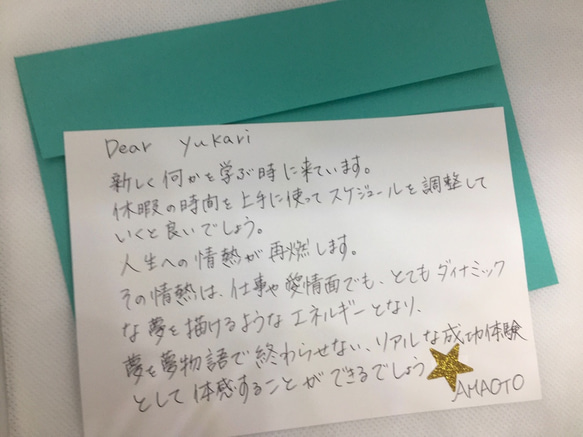 Dear Yukari
新しく何かを学ぶ時に来ています。
休暇の時間を上手に使ってスケジュールを調整して
いくと良いでしょう。
人生への情熱が再燃します。
その情熱は、仕事や愛情面でも、とてもダイナミック
な夢を描けるようなエネルギーとなり、
夢を夢物語で終わらせない、リアルな成功体験
として体感することができるでしょう
AMAOTO